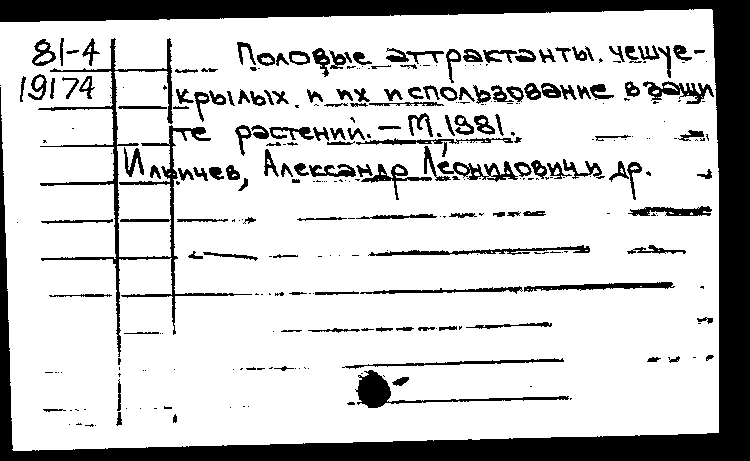 81-4 Половые аттрактанты чешуе-
19174 крылых и их использование в защи
те растений. - М. 1981.
Ильичев, Александр Леонидович и др.